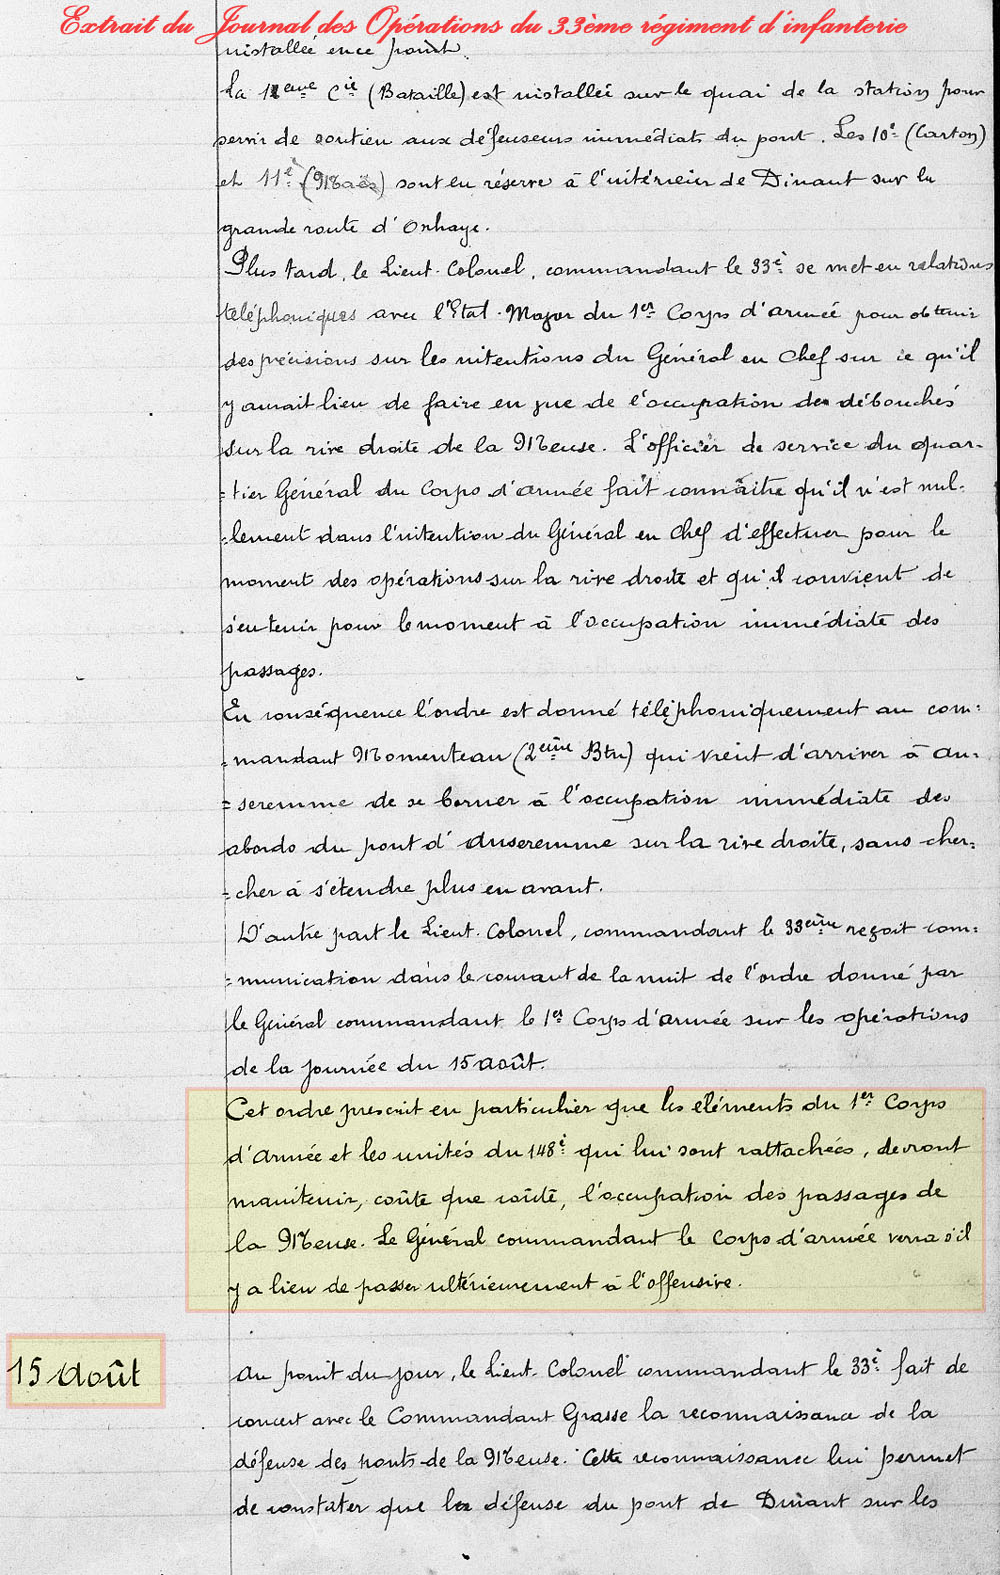 Extrait du Journal des Opérations du 33ème régiment d'infanterie
installée en ce point.
La 12eme Cie (Bataille) est installée sur le quai de la station pour
servir de soutien aux défenseurs immédiats du pont. Les 10e (Carton)
et 11e (Maës) sont en réserve à l'intérieur de Dinant sur la
grande route d'Onhaye.
Plus tard, le Lieut-Colonel, commandant le 33e se met en relations
téléphoniques avec l'Etat-Major du 1er Corps d'armée pour obtenir
des précisions sur les intentions du Général en Chef sur ce qu'il
y aurait lieu de faire en vue de l'occupation des débouchés
sur la rive droite de la Meuse. L'officier de service du quar-
=tier Général du Corps d'armée fait connaître qu'il n'est nul-
-lement dans l'intention du Général en Chef d'effectuer pour le
moment des opérations sur la rive droite et qu'il convient de
s'en tenir pour le moment à l'occupation immédiate des
passages.
En conséquence l'ordre est donné téléphoniquement au com=
=mandant Momenteau (2eme Btn) qui vient d'arriver à An=
=seremme de se borner à l'occupation immédiate des
abords du pont d'Anseremme sur la rive droite, sans cher=
=cher à s'étendre plus en avant.
D'autre part le Lieut-Colonel, commandant le 33eme reçoit com=
=munication dans le courant de la nuit de l'ordre donné par
le Général commandant le 1er Corps d'armée sur les opérations
de la journée du 15 août.
Cet ordre prescrit en particulier que les éléments du 1er Corps
d'Armée et les unités du 148e qui lui sont rattachées, devront
maintenir, coûte que coûte, l'occupation des passages de
la Meuse. Le Général commandant le Corps d'armée verra s'il
y a lieu de passer ultérieurement à l'offensive.
15 Août
Au point du jour, le Lieut-Colonel commandant le 33e fait de
concert avec le Commandant Grasse la reconnaissance de la
défense des ponts de la Meuse. Cette reconnaissance lui permet
de constater que la défense du pont de Dinant sur les